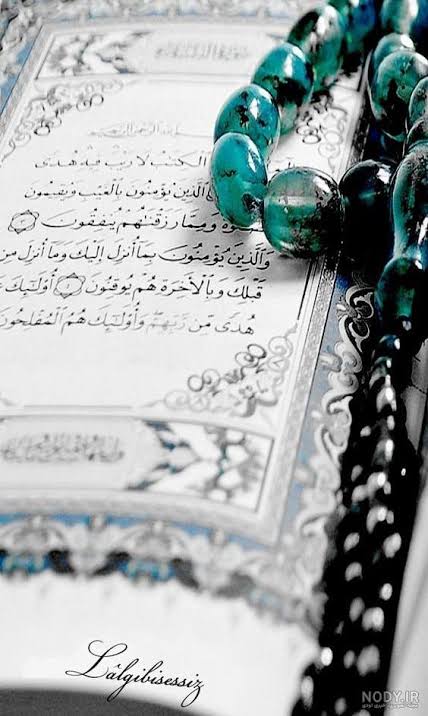 بسم الله الرحمن الرحيم
الْكِتَٰبُ لَا رَيْبَ فِيهِ هُدًى
الَّذِينَ يُؤْمِنُونَ بِالْغَيْبِ وَيُقِيمُونَ
وَمِمَّا رَزَقْنَٰهُمْ يُنفِقُونَ
وَالَّذِينَ يُؤْمِنُونَ بِمَا أُنزِلَ إِلَيْكَ وَمَا أُنزِلَ مِن
قَبْلِكَ وَبِالْآخِرَةِ هُمْ يُوقِنُونَ أُولَٰئِكَ
هُدًى مِّن رَّبِّهِمْ وَأُولَٰئِكَ هُمُ الْمُفْلِحُونَ
Lâlgibisessiz
NODY.IR